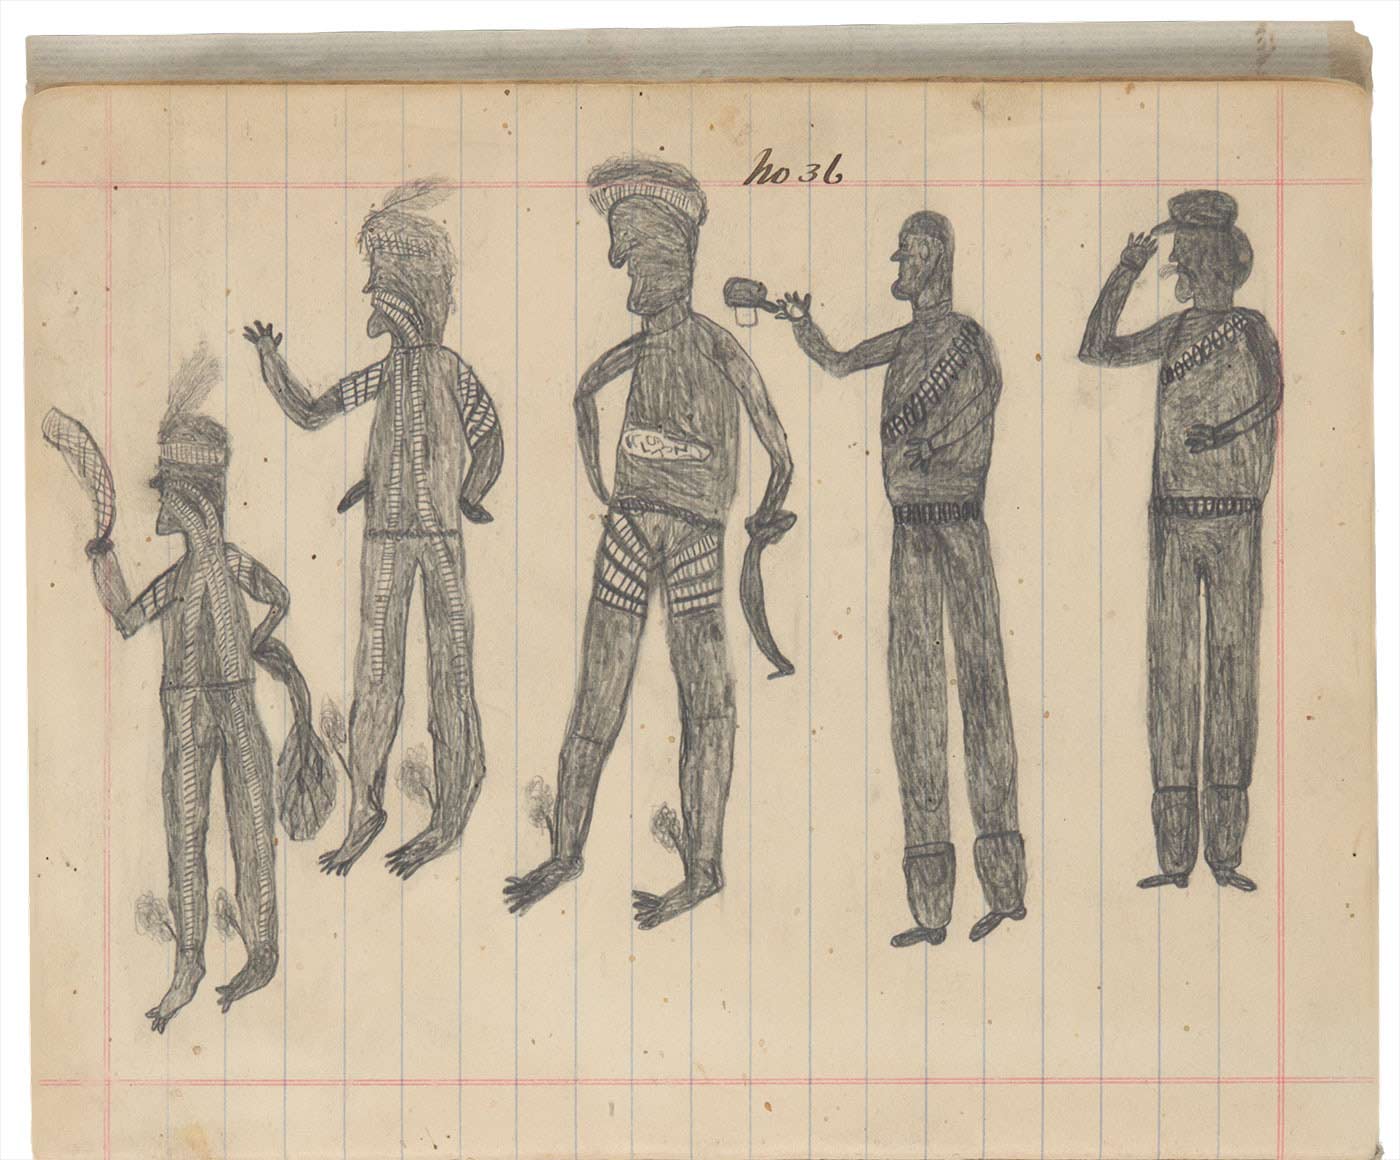 No 36